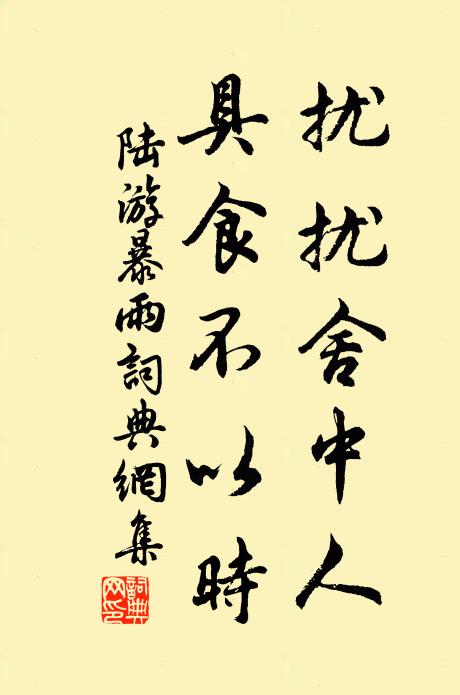 扰扰舍中人
具食不以時
陆游暴雨詞典網集
詞典
网印